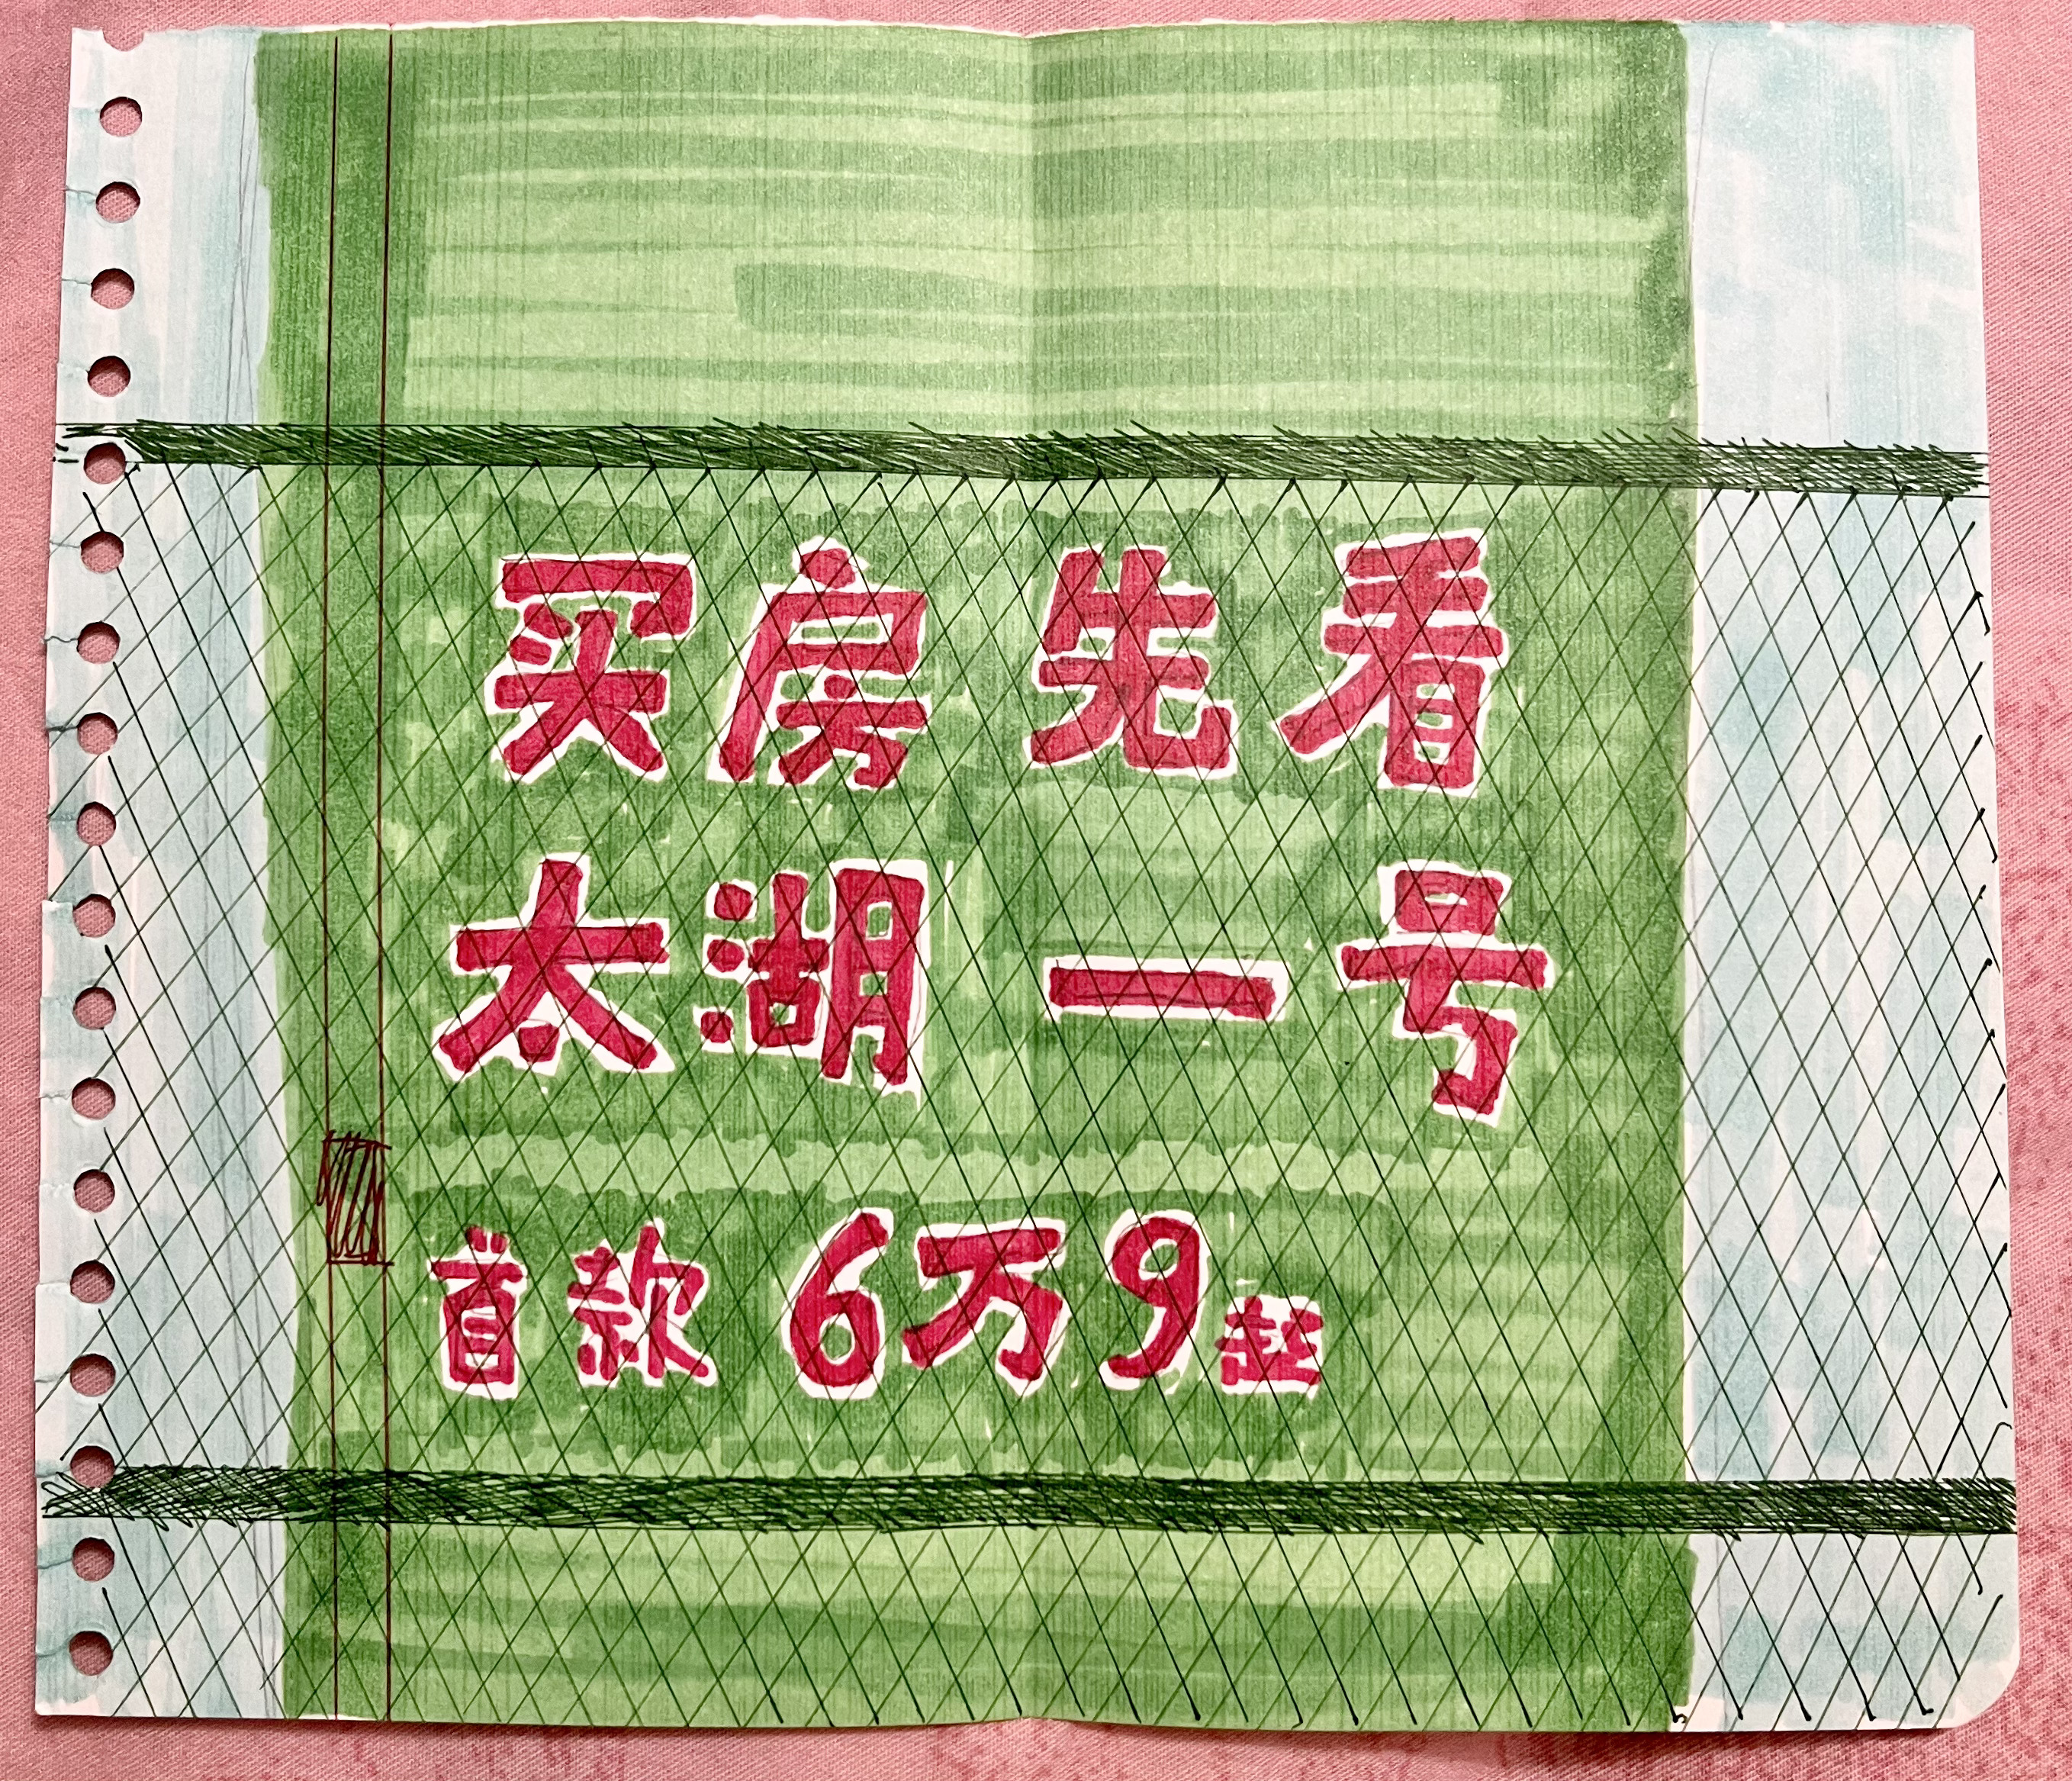 买房先看
太湖一号
首款6万9起